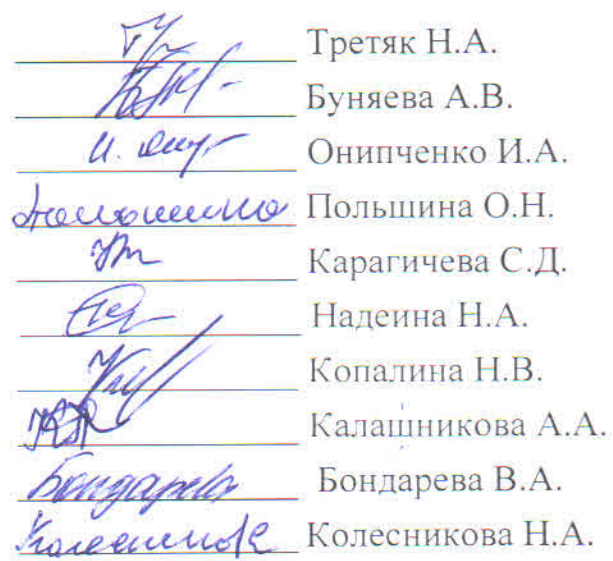 Третяк Н.А.
Буняева А.В.
Онипченко И.А.
Польшина О.Н.
Карагичева С.Д.
Надеина Н.А.
Копалина Н.В.
Калашникова А.А.
Бондарева Бондарева В.А.
Колесникова Н.А.